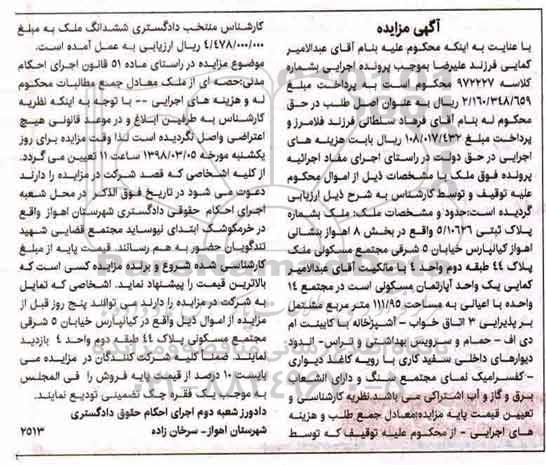 آگهی مزایده
با عنایت به اینکه محکوم علیه بنام آقای عبدالامیر
کمایی فرزند علیرضا بموجب پرونده اجرایی بشماره
کلاسه ۹۷۲۲۲۷ محکوم است به پرداخت مبلغ
۲/۱۶۰/۳۴۸/۶۵۹ ریال به عنوان اصل طلب در حق
محکوم له بنام آقای فرهاد سلطانی فرزند فلامرز و
پرداخت مبلغ ۱۰۸/۰۱۷/۴۳۲ ریال بابت هزینه های
اجرایی در حق دولت در راستای اجرای مفاد اجرائیه
پرونده فوق ملک با مشخصات ذیل از اموال محکوم
علیه توقیف و توسط کارشناس به شرح ذیل ارزیابی
گردیده است:حدود و مشخصات ملک: ملک بشماره
پلاک ثبتی ۵/۱۰۶۲۶ واقع در بخش ۸ اهواز بنشانی
اهواز کیانپارس خیابان ۵ شرقی مجتمع مسکونی ملک
پلاک ۴۴ طبقه دوم واحد ۴ با مالکیت آقای عبدالامیر
کمایی یک واحد آپارتمان مسکونی است در مجتمع ۱۴
واحده با اعیانی به مساحت ۱۱۱/۹۵ متر مربع مشتمل
بر پذیرایی ۳ اتاق خواب - آشپزخانه با کابینت ام
دی اف - حمام و سرویس بهداشتی و تراس - اندود
دیوارهای داخلی سفید کاری با رویه کاغذ دیواری
- کفسرامیک نمای مجتمع سنگ و دارای انشعاب
برق و گاز و آب اشتراکی می باشد.نظریه کارشناسی و
تعیین قیمت پایه مزایده:معادل جمع طلب و هزینه
های اجرایی - از محکوم علیه توقیف که توسط
کارشناس منتخب دادگستری ششدانگ ملک به مبلغ
۴/۴۷۸/۰۰۰/۰۰۰ ریال ارزیابی به عمل آمده است.
موضوع مزایده در راستای ماده ۵۱ قانون اجرای احکام
مدنی:حصه ای از ملک معادل جمع مطالبات محکوم
له و هزینه های اجرایی -- با توجه به اینکه نظریه
کارشناس به طرفین ابلاغ و در موعد قانونی هیچ
اعتراضی واصل نگردیده است لذا وقت مزایده برای روز
یکشنبه مورخه ۱۳۹۸/۰۳/۰۵ ساعت ۱۱ تعیین می گردد.
از کلیه اشخاصی که قصد شرکت در مزایده را دارند
دعوت می شود در تاریخ فوق الذکر در محل شعبه
اجرای احکام حقوقی دادگستری شهرستان اهواز واقع
در خرمکوشک ابتدای نیوساید مجتمع قضایی شهید
تندگویان حضور به هم رسانند. قیمت پایه از مبلغ
کارشناسی شده شروع و برنده مزایده کسی است که
بالاترین قیمت را پیشنهاد نماید. اشخاصی که تمایل
به شرکت در مزایده را دارند می توانند پنج روز قبل از
مزایده از اموال ذیل واقع در کیانپارس خیابان ۵ شرقی
مجتمع مسکونی پلاک ۴۴ طبقه دوم واحد ۴ بازدید
نمایند. ضمنا کلیه شرکت کنندگان در مزایده می
بایست ۱۰ درصد از قیمت پایه فروش را فی المجلس
به موجب یک فقره چک تضمینی تودیع نمایند.
دادورز شعبه دوم اجرای احکام حقوق دادگستری
شهرستان اهواز- سرخان زاده
۲۵۱۳